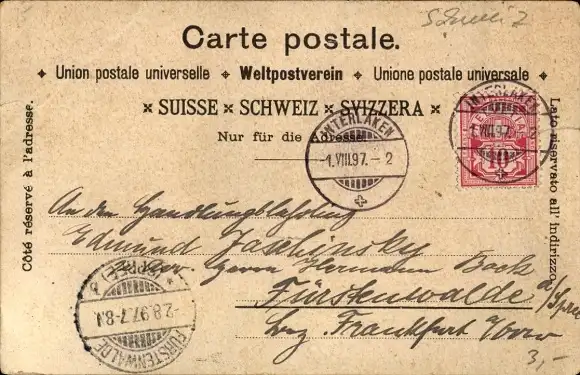 Schweiz
Carte postale.
Union postale universelle ✦ Weltpostverein ✦ Unione postale universale
× SUISSE × SCHWEIZ × SVIZZERA ×
Nur für die Adresse.
Côté réservé à l'adresse.
Lato riservato all' indirizzo.
INTERLAKEN
-1.VIII.97.-2
INTERLAKEN
-1.VIII.97.-2
10
An den Handlungslehrling
Edmund Jaschinsky
Herrn Hermann Bock
Fürstenwalde a/Spree
Bez. Frankfurt Oder
FÜRSTENWALDE
(SPREE)
2.8.97.7-8
3,-